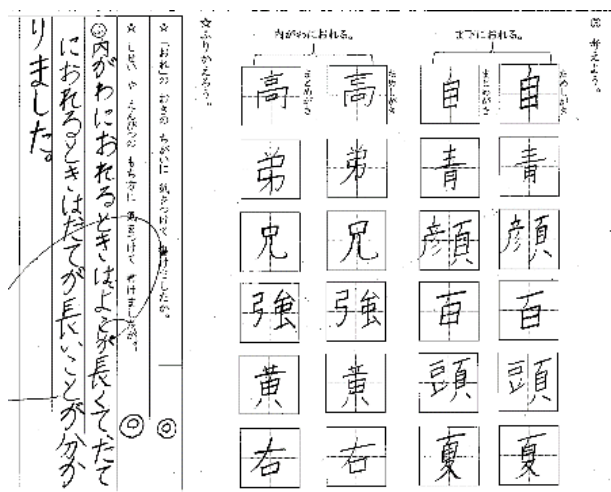 考えよう。
まっすぐにおれる。
ためしがき
自
青
顔
百
頭
夏
まとめがき
自
青
顔
百
頭
夏
内がわにおれる。
ためしがき
高
弟
兄
強
黄
右
まとめがき
高
弟
兄
強
黄
右
☆ふりかえろう。
☆「おれ」の むきの ちがいに 気をつけて 書けましたか。◎
☆しせい や えんぴつの もち方に 気をつけて 書けましたか。◎
内がわにおれるときは、よこが長くて、たて
におれるときはたてが長いことが分か
りました。